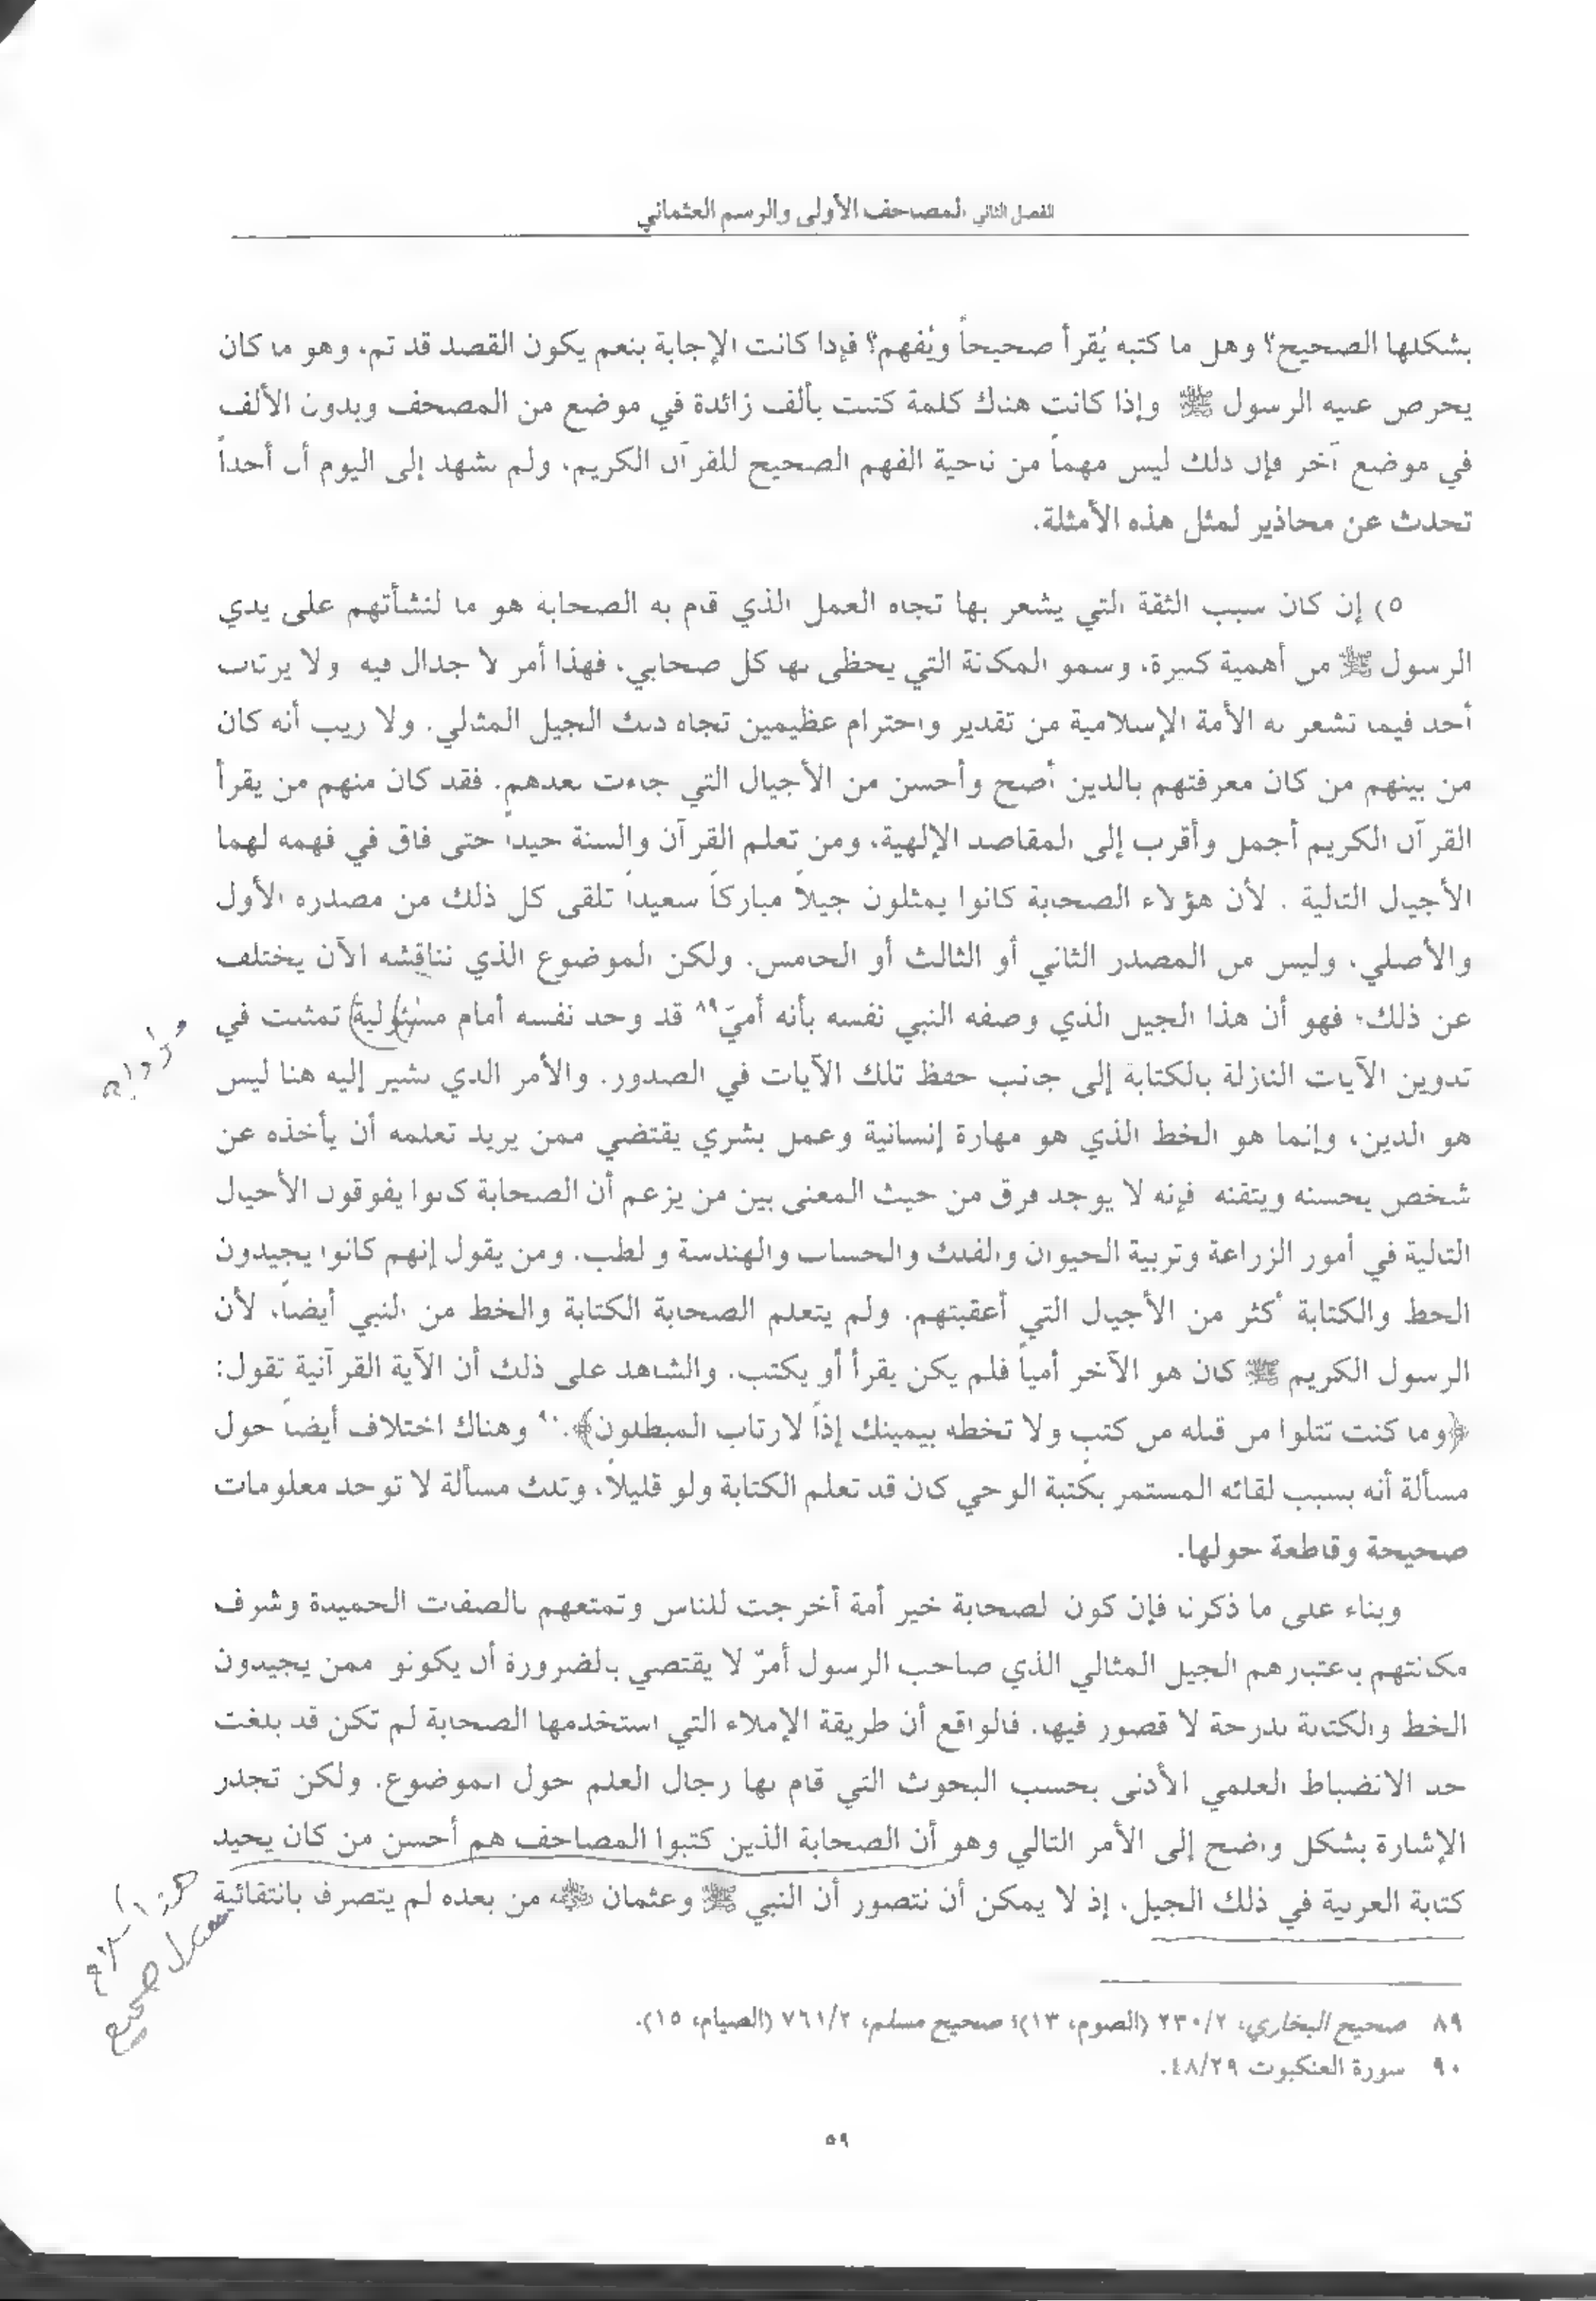 الفصل الثاني المصاحف الأولى والرسم العثماني
بشكلها الصحيح؟ وهل ما كتبه يُقرأ صحيحاً ويُفهم؟ فإذا كانت الإجابة بنعم يكون القصد قد تم، وهو ما كان
يحرص عليه الرسول ﷺ وإذا كانت هناك كلمة كتبت بألف زائدة في موضع من المصحف وبدون الألف
في موضع آخر فإن ذلك ليس مهماً من ناحية الفهم الصحيح للقرآن الكريم، ولم نشهد إلى اليوم أن أحداً
تحدث عن محاذير لمثل هذه الأمثلة.
٥) إن كان سبب الثقة التي يشعر بها تجاه العمل الذي قام به الصحابة هو ما لنشأتهم على يدي
الرسول ﷺ من أهمية كبيرة، وسمو المكانة التي يحظى بها كل صحابي، فهذا أمر لا جدال فيه ولا يرتاب
أحد فيما تشعر به الأمة الإسلامية من تقدير واحترام عظيمين تجاه ذلك الجيل المثالي. ولا ريب أنه كان
من بينهم من كان معرفتهم بالدين أصح وأحسن من الأجيال التي جاءت بعدهم. فقد كان منهم من يقرأ
القرآن الكريم أجمل وأقرب إلى المقاصد الإلهية، ومن تعلم القرآن والسنة جيداً حتى فاق في فهمه لهما
الأجيال التالية . لأن هؤلاء الصحابة كانوا يمثلون جيلاً مباركاً سعيداً تلقى كل ذلك من مصدره الأول
والأصلي، وليس من المصدر الثاني أو الثالث أو الخامس. ولكن الموضوع الذي نناقشه الآن يختلف
عن ذلك؛ فهو أن هذا الجيل الذي وصفه النبي نفسه بأنه أميّ٨٩ قد وجد نفسه أمام مسئولية تمثلت في
تدوين الآيات النازلة بالكتابة إلى جانب حفظ تلك الآيات في الصدور. والأمر الذي نشير إليه هنا ليس
هو الدين، وإنما هو الخط الذي هو مهارة إنسانية وعمل بشري يقتضي ممن يريد تعلمه أن يأخذه عن
شخص يحسنه ويتقنه فإنه لا يوجد فرق من حيث المعنى بين من يزعم أن الصحابة كانوا يفوقون الأجيال
التالية في أمور الزراعة وتربية الحيوان والفلك والحساب والهندسة والطب. ومن يقول إنهم كانوا يجيدون
الخط والكتابة أكثر من الأجيال التي أعقبتهم. ولم يتعلم الصحابة الكتابة والخط من النبي أيضاً، لأن
الرسول الكريم ﷺ كان هو الآخر أمياً فلم يكن يقرأ أو يكتب. والشاهد على ذلك أن الآية القرآنية تقول:
﴿وما كنت تتلوا من قبله من كتب ولا تخطه بيمينك إذاً لارتاب المبطلون﴾.٩٠ وهناك اختلاف أيضاً حول
مسألة أنه بسبب لقائه المستمر بكتبة الوحي كان قد تعلم الكتابة ولو قليلاً، وتلك مسألة لا توجد معلومات
صحيحة وقاطعة حولها.
وبناء على ما ذكرنا فإن كون الصحابة خير أمة أخرجت للناس وتمتعهم بالصفات الحميدة وشرف
مكانتهم باعتبارهم الجيل المثالي الذي صاحب الرسول أمرٌ لا يقتضي بالضرورة أن يكونوا ممن يجيدون
الخط والكتابة بدرجة لا قصور فيها. فالواقع أن طريقة الإملاء التي استخدمها الصحابة لم تكن قد بلغت
حد الانضباط العلمي الأدنى بحسب البحوث التي قام بها رجال العلم حول الموضوع. ولكن تجدر
الإشارة بشكل واضح إلى الأمر التالي وهو أن الصحابة الذين كتبوا المصاحف هم أحسن من كان يجيد
كتابة العربية في ذلك الجيل. إذ لا يمكن أن نتصور أن النبي ﷺ وعثمان رضي الله عنه من بعده لم يتصرف بانتقائية
هذا
صحيح
٨٩ صحيح البخاري، ٢٣٠/٢ (الصوم، ١٣)؛ صحيح مسلم، ٧٦١/٢ (الصيام، ١٥).
٩٠ سورة العنكبوت ٤٨/٢٩.
٥٩